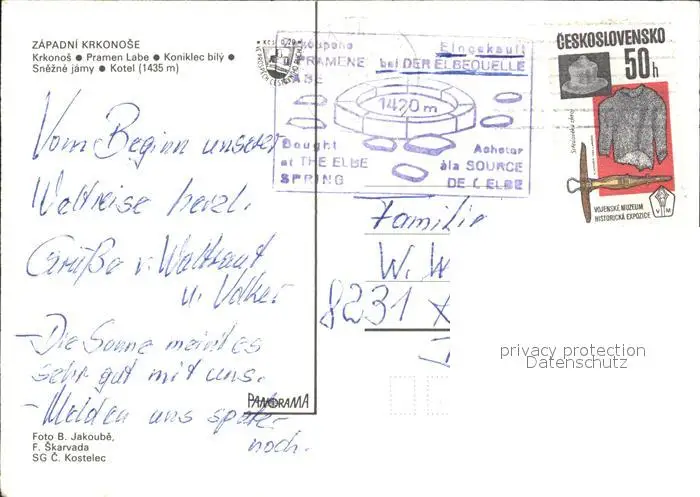 ZÁPADNÍ KRKONOŠE
Krkonoš ● Pramen Labe ● Koniklec bílý ●
Sněžné jámy ● Kotel (1435 m)
Vom Beginn unserer
Weltreise herzl.
Grüße v. Waltraut
u. Volker
- Die Sonne meint es
sehr gut mit uns.
- Melden uns später
noch.
PANORAMA
Foto B. Jakoubě,
F. Škarvada
SG Č. Kostelec
Kčs 0,20
PRAMENE
Eingekauft
bei DER ELBEQUELLE
1420 m
Bought
at THE ELBE
SPRING
Acheter
àla SOURCE
DE L ELBE
ČESKOSLOVENSKO
50h
VOJENSKÉ MUZEUM
HISTORICKÁ EXPOZICE
VM
Familie
W. W
8231
privacy protection
Datenschutz